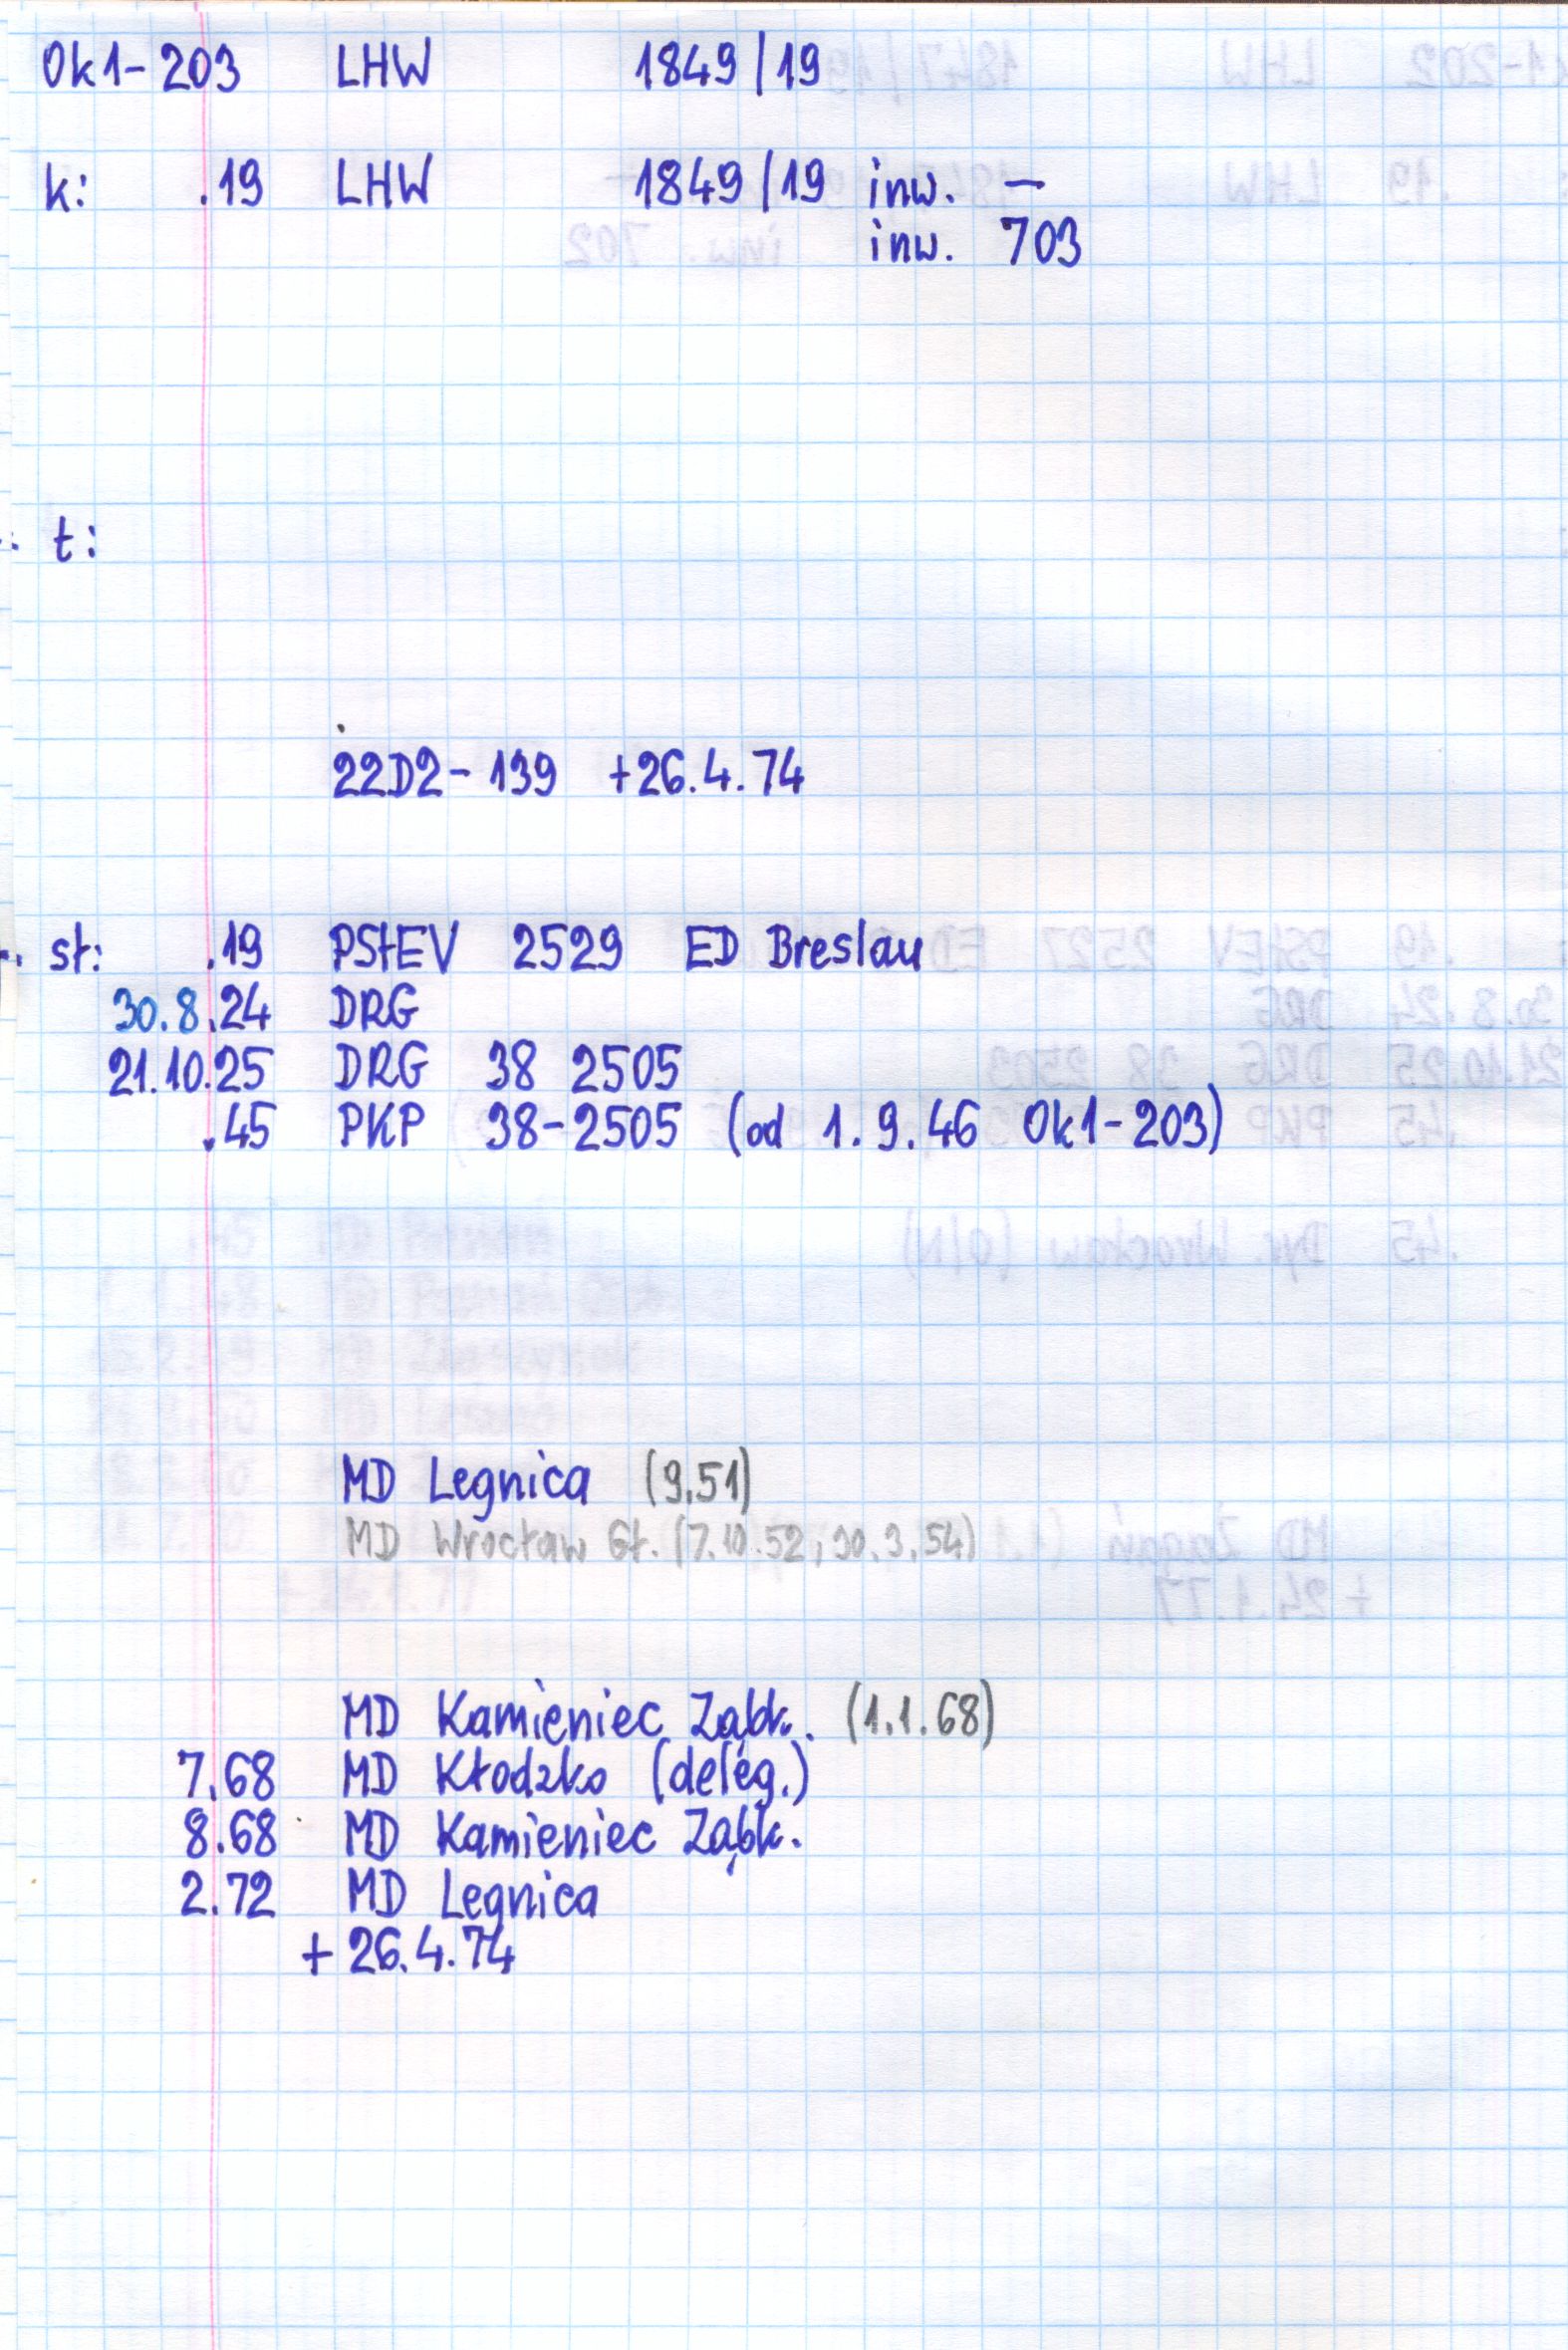 Ok1-203 LHW 1849/19
k: .19 LHW 1849/19 inw. —
inw. 703
t:
22D2-139 +26.4.74
st: .19 PStEV 2529 ED Breslau
30.8.24 DRG
21.10.25 DRG 38 2505
.45 PKP 38-2505 (od 1.9.46 Ok1-203)
MD Legnica (9.51)
MD Wrocław Gł. (7.10.52, 30.3.54)
MD Kamieniec Ząbk. (1.1.68)
7.68 MD Kłodzko (deleg.)
8.68 MD Kamieniec Ząbk.
2.72 MD Legnica
+ 26.4.74